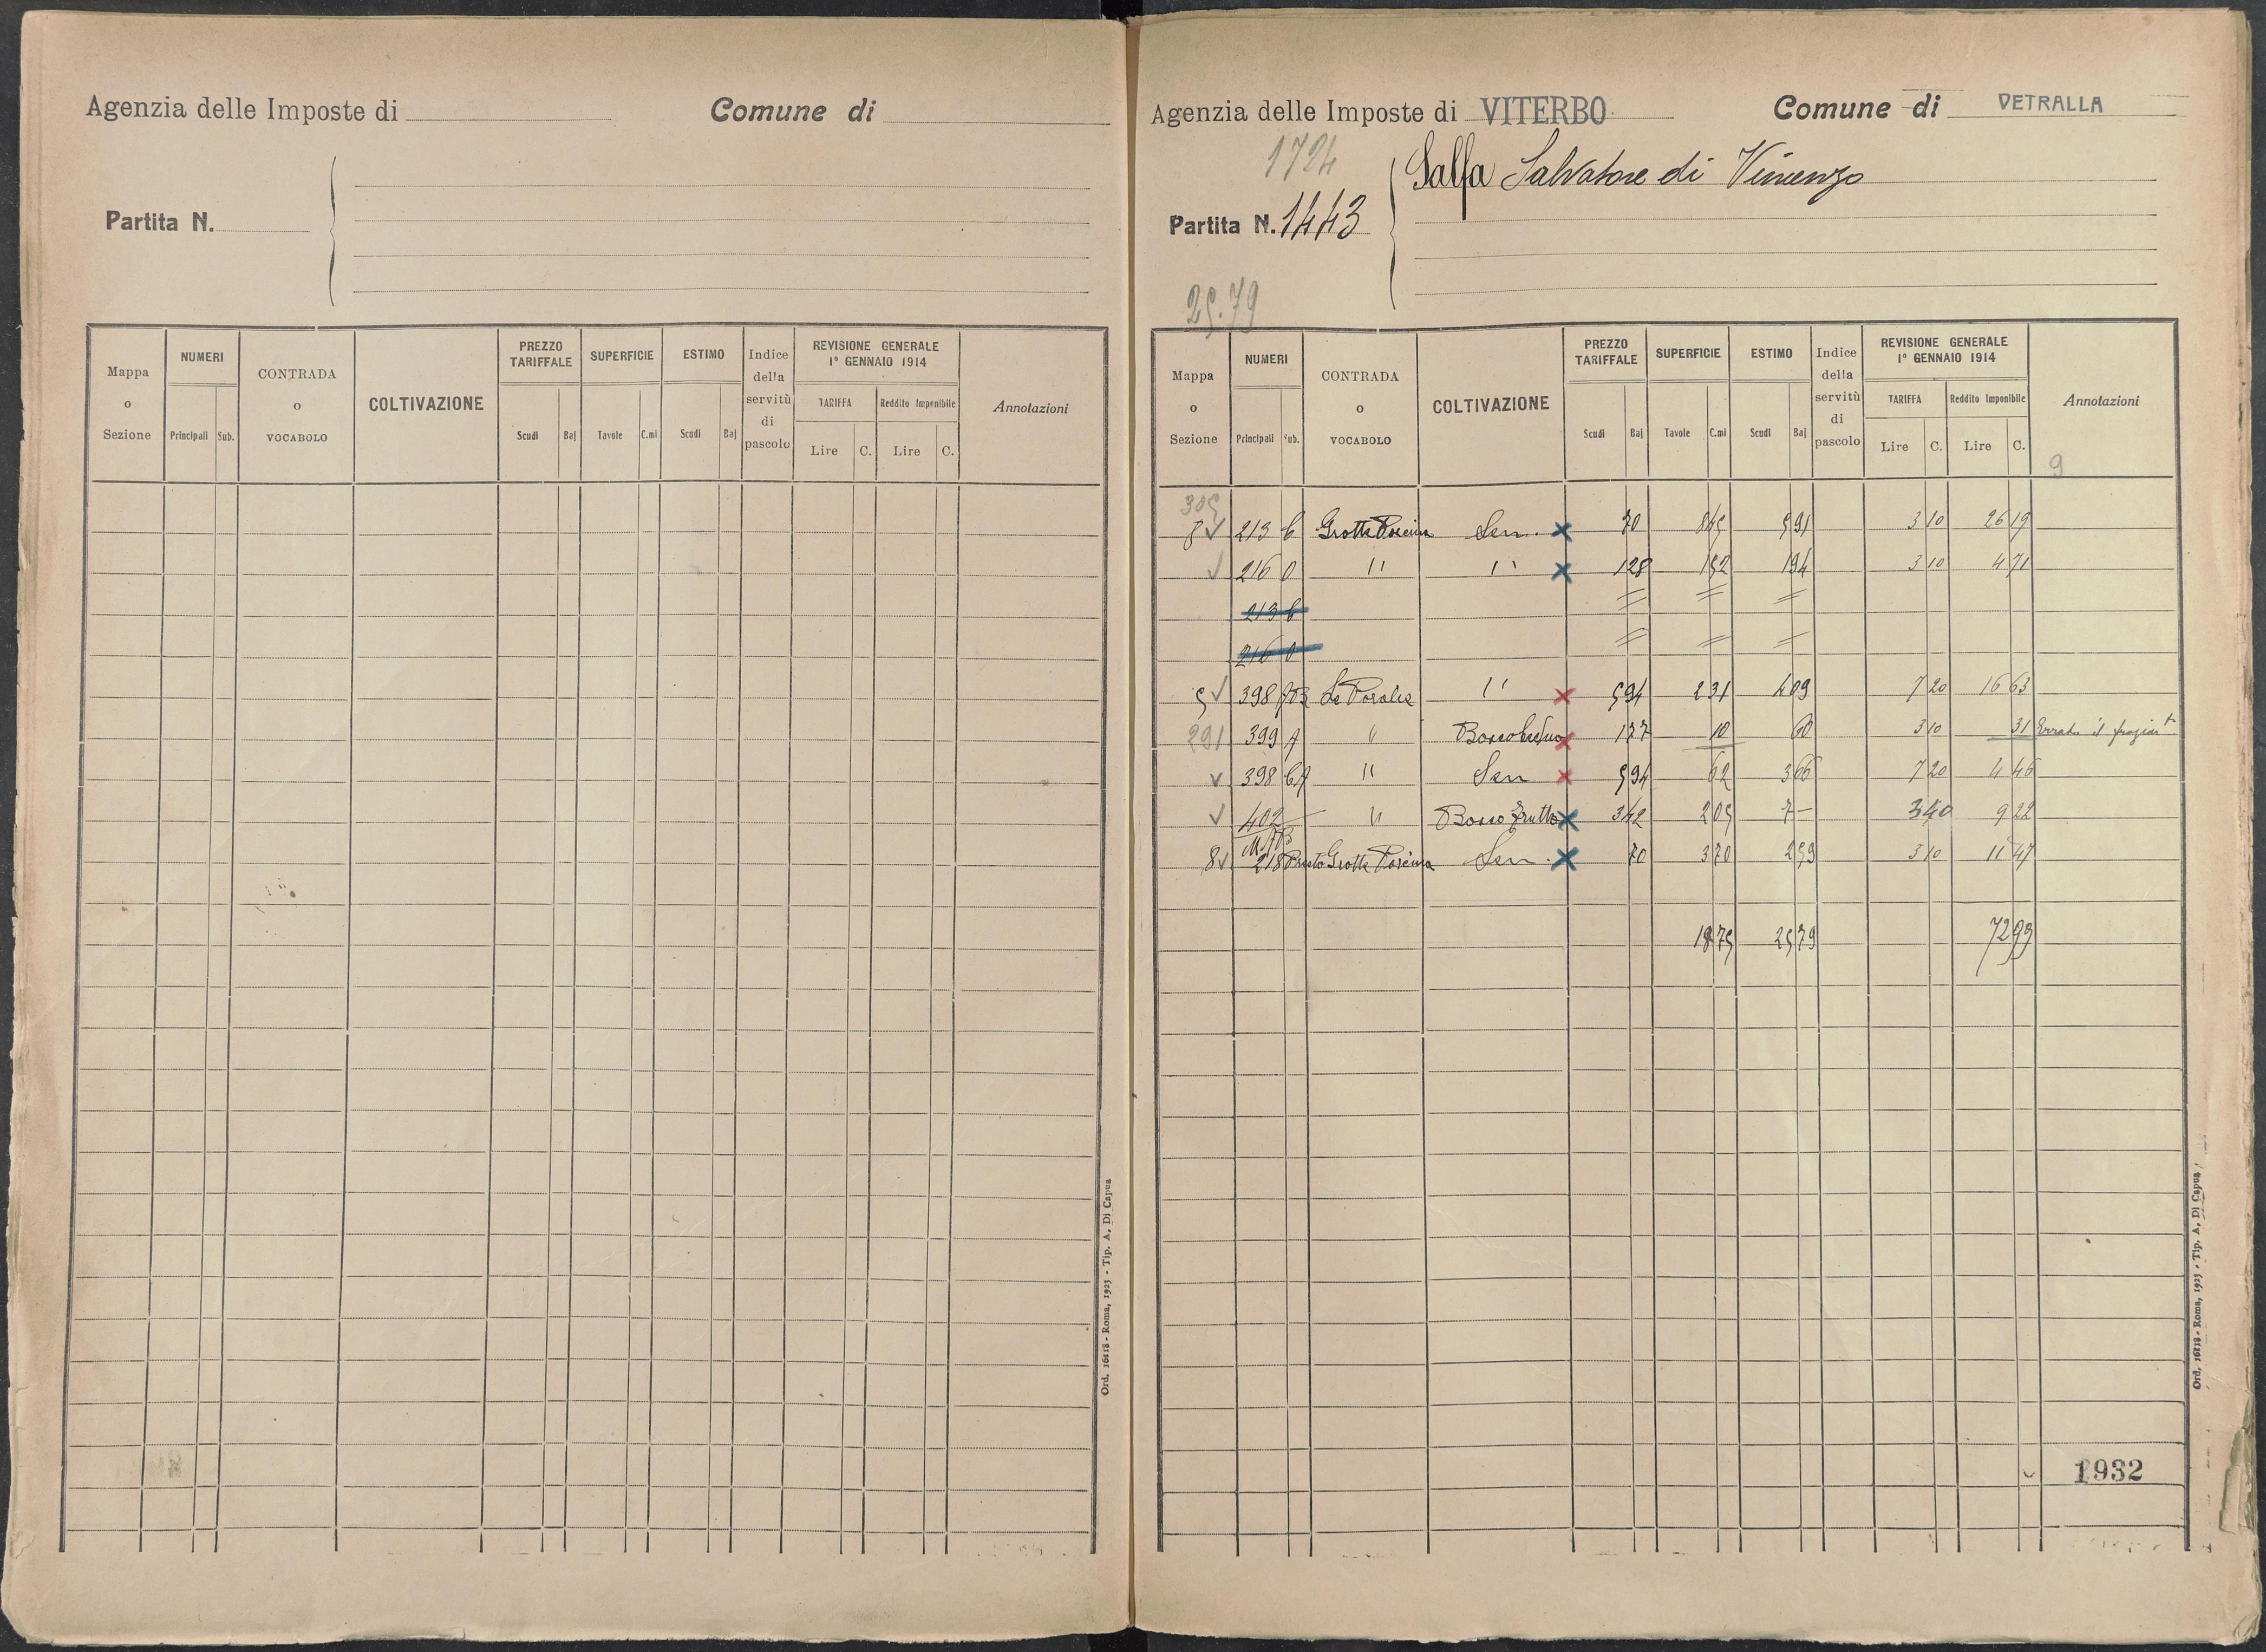 Agenzia delle Imposte di
Comune di
Partita N.
Mappa o Sezione
NUMERI
Principali Sub.
CONTRADA o VOCABOLO
COLTIVAZIONE
PREZZO TARIFFALE
Scudi Baj
SUPERFICIE
Tavole C.mi
ESTIMO
Scudi Baj
Indice della servitù di pascolo
REVISIONE GENERALE 1° GENNAIO 1914
TARIFFA
Lire C.
Reddito Imponibile
Lire C.
Annotazioni
Ord. 16518 - Roma, 1923 - Tip. A. Di Capua
Agenzia delle Imposte di VITERBO
Comune di VETRALLA
1724
Salfa Salvatore di Vincenzo
Partita N. 1443
25.79
Mappa o Sezione
NUMERI
Principali Sub.
CONTRADA o VOCABOLO
COLTIVAZIONE
PREZZO TARIFFALE
Scudi Baj
SUPERFICIE
Tavole C.mi
ESTIMO
Scudi Baj
Indice della servitù di pascolo
REVISIONE GENERALE 1° GENNAIO 1914
TARIFFA
Lire C.
Reddito Imponibile
Lire C.
Annotazioni
9
305
8 ✓ 213 b Grotta Porcina Sem. x 70 845 591 3 10 26 19
✓ 216 0 " " x 128 152 194 3 10 4 71
213 b = = =
216 0 = = =
5 ✓ 398 " x 594 231 409 7 20 16 63
291 399 A " Bosco x 177 10 60 3 10 31 Errato il
✓ 398 bA " Sem x 594 62 366 7 20 4 46
✓ 402 " Bosco Frutto x 342 205 7 — 340 9 22
8 ✓ 218 Grotta Porcina Sem. x 70 370 259 3 10 11 47
1875 2579 7299
1932
Ord. 16518 - Roma, 1923 - Tip. A. Di Capua